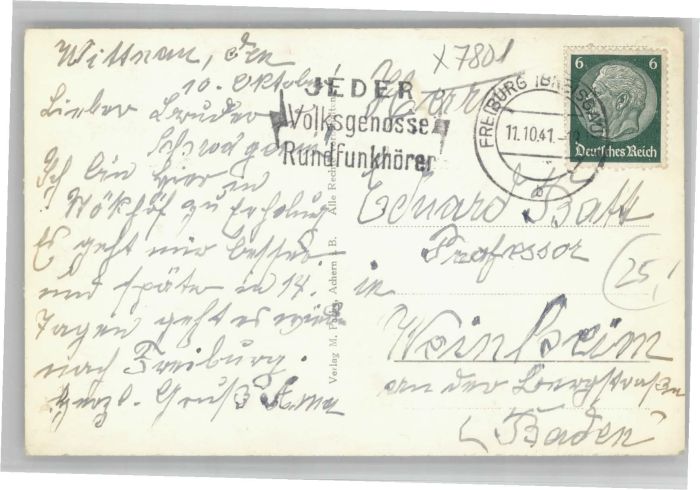 Wittnau, den
10. Oktober
Lieber Bruder
Schwägerin!
Ich bin hier in
Stöckhöf zu Erholung
Es geht mir besser
und später in 14.
Tagen geht es wieder
nach Freiburg.
Herzl. Gruß Anna
X7801
JEDER
Volksgenosse
Rundfunkhörer
FREIBURG (BREISGAU)
11.10.41.
6 6
Deutsches Reich
Verlag M. Achern i. B. Alle Rechte
Herrn
Eduard Batt
Professor
in
Weinheim
an der Bergstraße
(Baden)
25,-